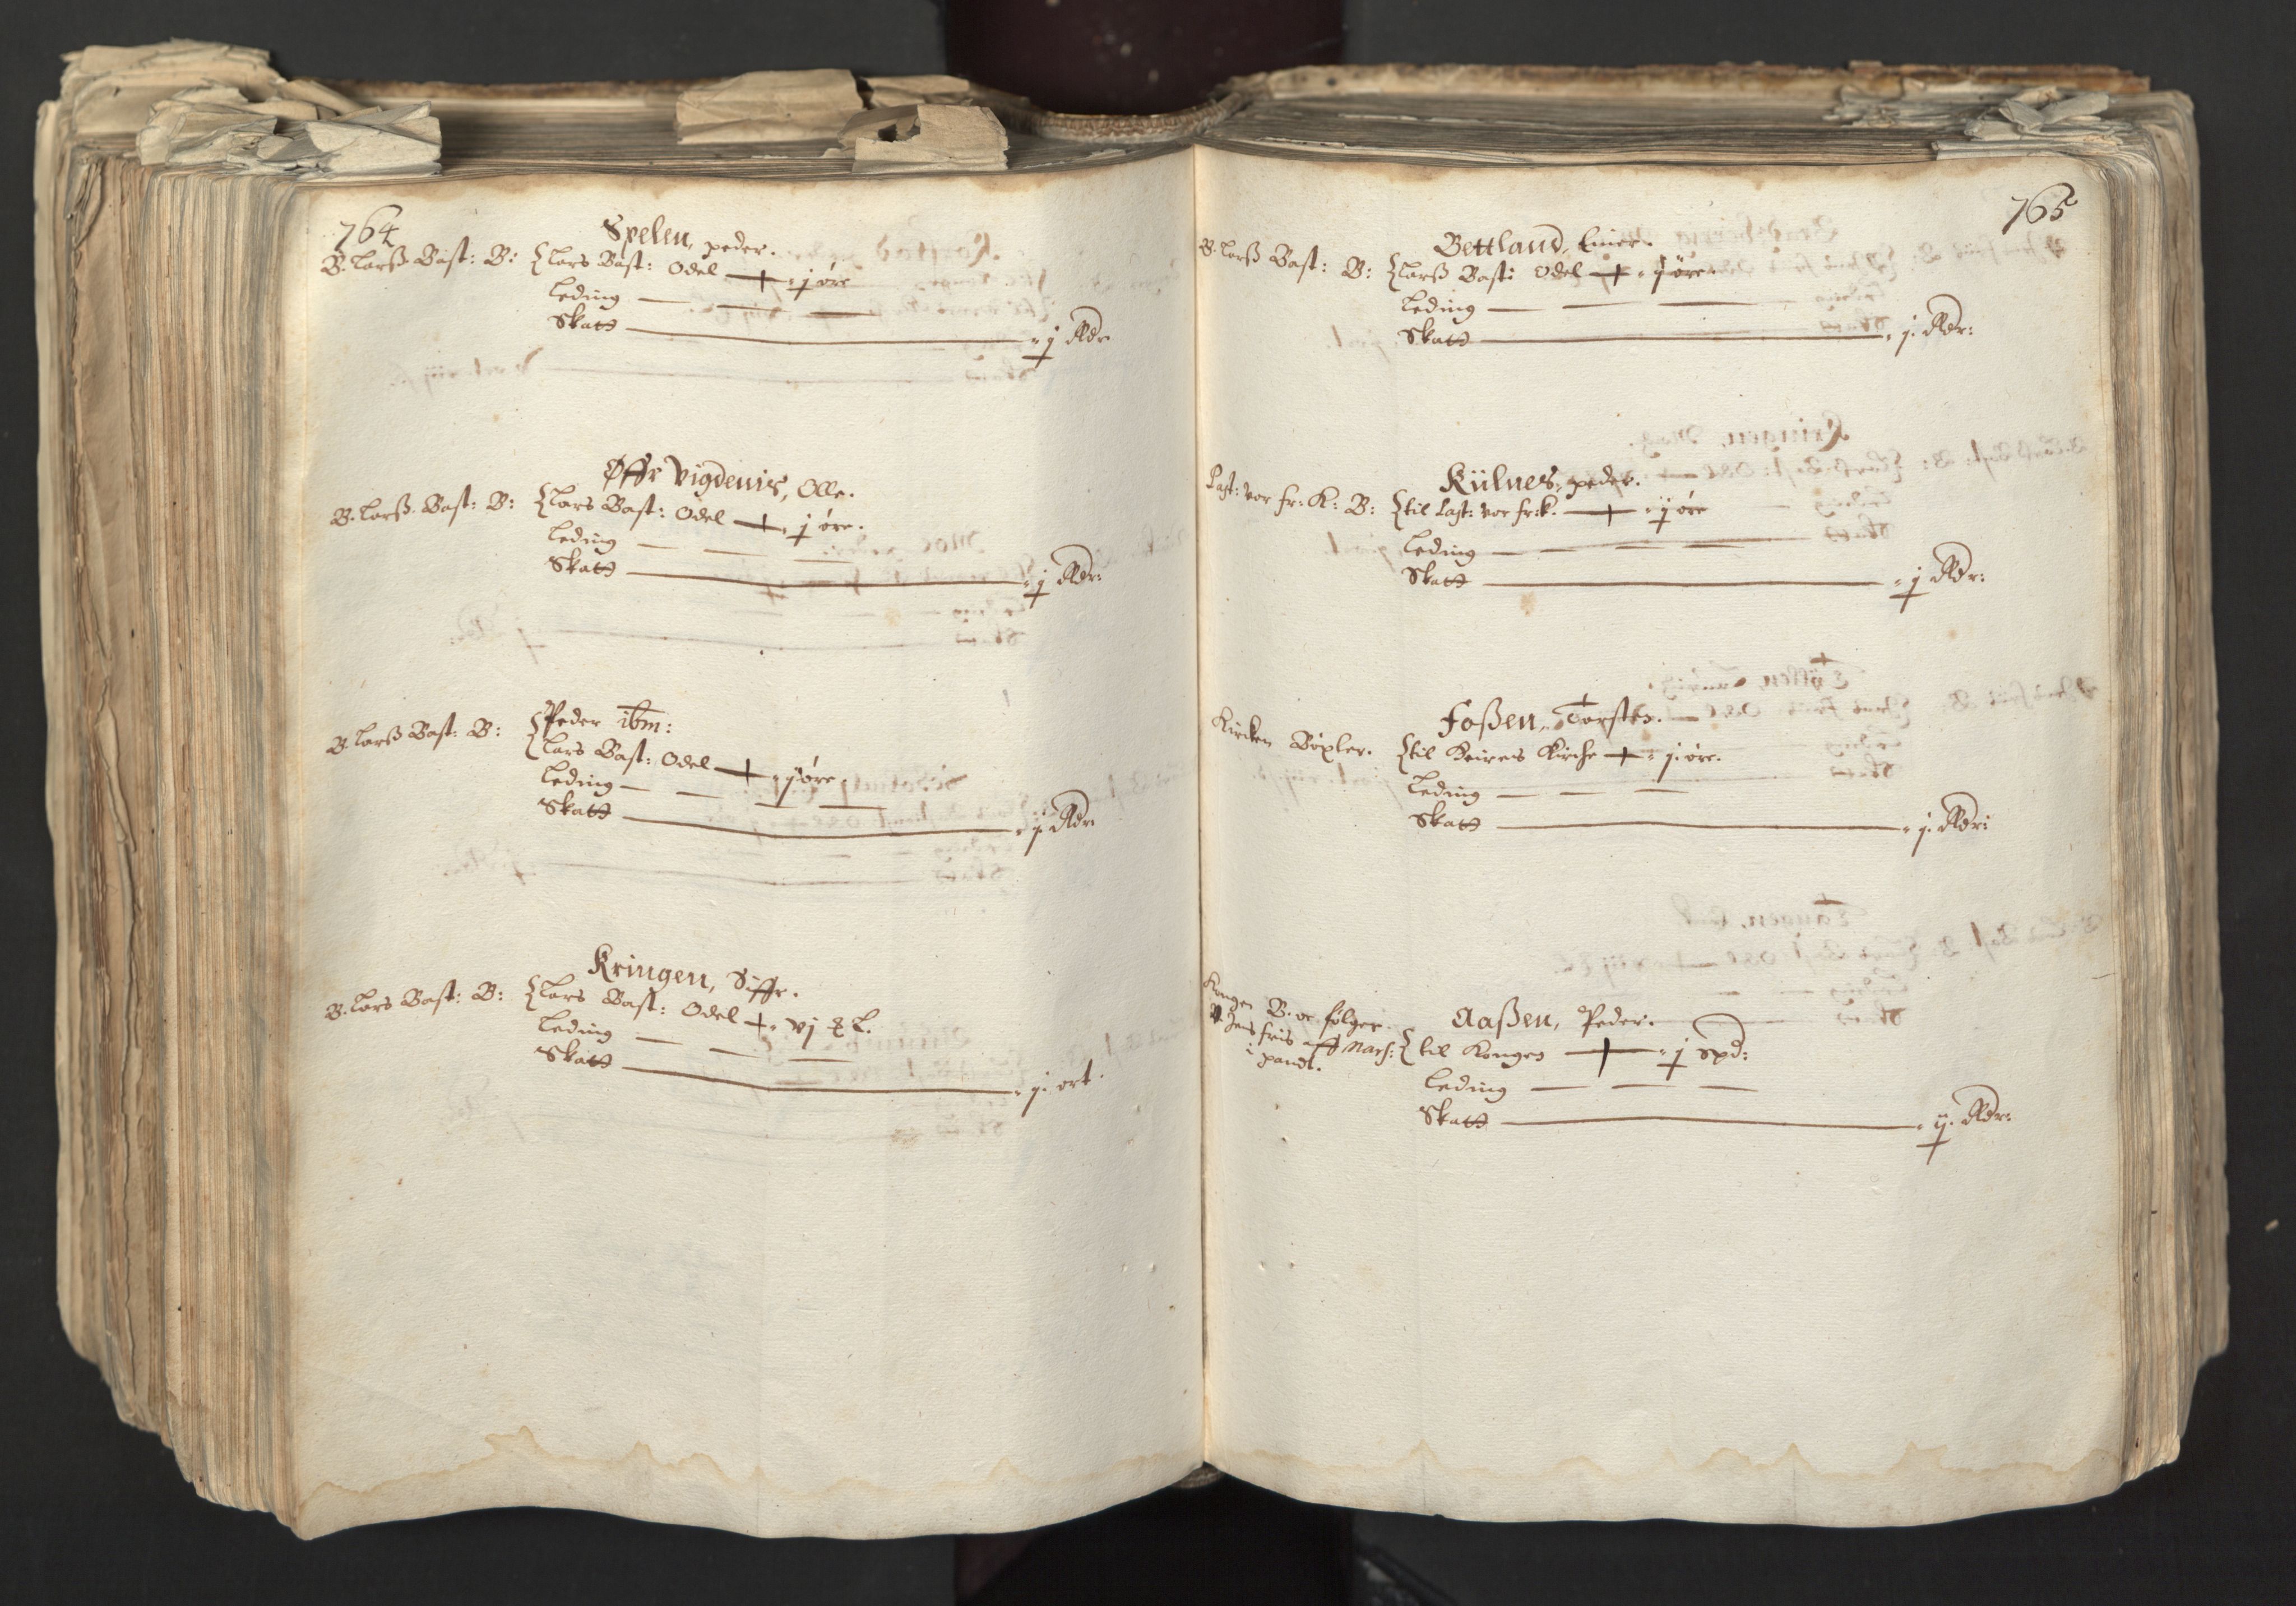 764
Spelen, peder.
B. Larß Bast: B: Lars Bast: Odel j øre
Leding
Skatt j Rdr
Øffr Vigdenis, Olle.
B. Larß Bast: B: Lars Bast: Odel j øre.
Leding
Skatt j Rdr:
Peder ibm:
B. Larß Bast: B: Lars Bast: Odel ij øre
Leding
Skatt j. Rdr
Kringen, Siffr.
B. Lars Bast: B: Lars Bast: Odel vj
Leding
Skatt j. ort.
765
Bettland, Einer.
B. Larß Bast: B: Larß Bast: Odel ij øre.
Leding
Skatt j. Rdr:
Külnes, peder.
Last: vor fr: K: B: til Last: vor fr: k. ij øre
Leding
Skatt j Rdr:
Foßen, Torsten.
Kircken Böxler. til Kirche j. øre.
Leding
Skatt j. Rdr:
Aaßen, Peder.
Kongen B. oc følger
Jens friis aff til Kongen j Spd:
i pandt.
Leding
Skatt ij. Rdr: